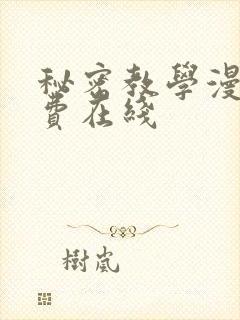 秘密教學漫
費在綫
樹嵐